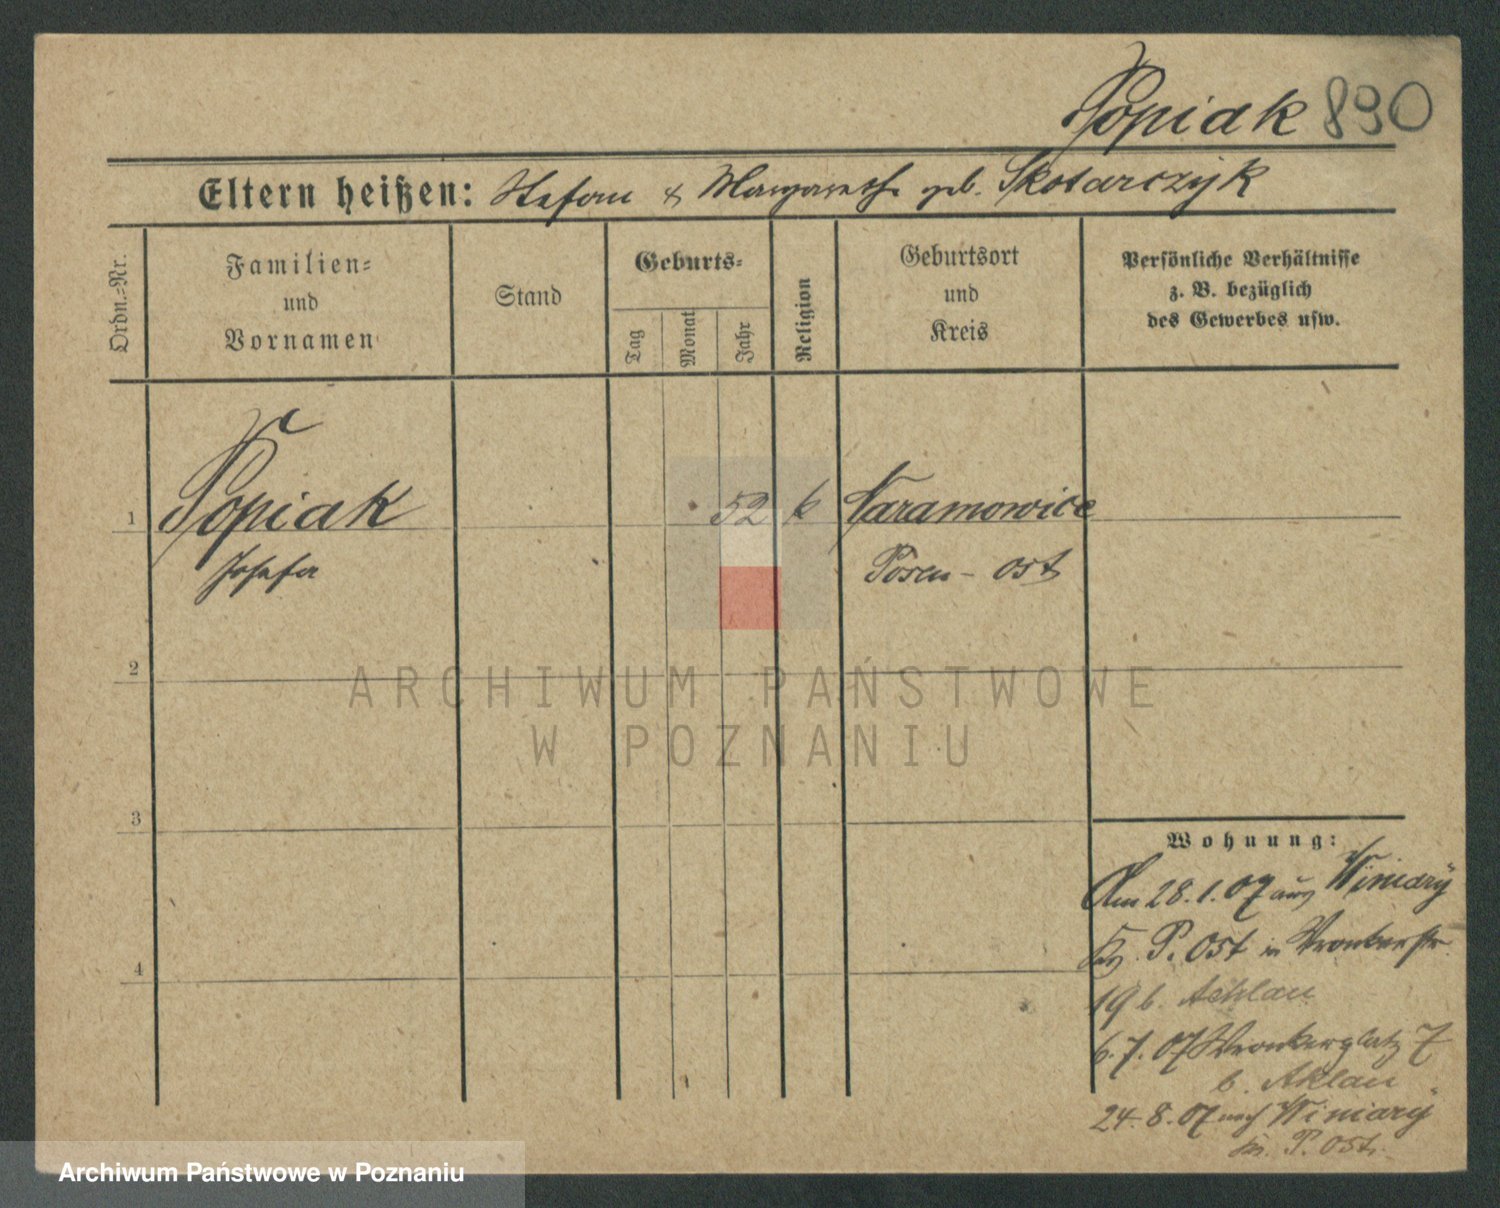 Popiak 890
Eltern heißen: Stefan & Margarethe geb. Skotarczyk
Ordn.-Nr.
Familien-
und
Vornamen
Stand
Geburts-
Tag
Monat
Jahr
Religion
Geburtsort
und
Kreis
Persönliche Verhältnisse
z. B. bezüglich
des Gewerbes usw.
1 Popiak 52 k Naramowice
Josefa Posen - Ost
2
3
4
Wohnung:
Am 28.1.07 aus Winiary
P. Ost in Wronkerstr.
19 b.
6.7.07 Wronkerplatz 7
b.
24.8.07 nach Winiary
P. Ost.
ARCHIWUM PAŃSTWOWE
W POZNANIU
Archiwum Państwowe w Poznaniu